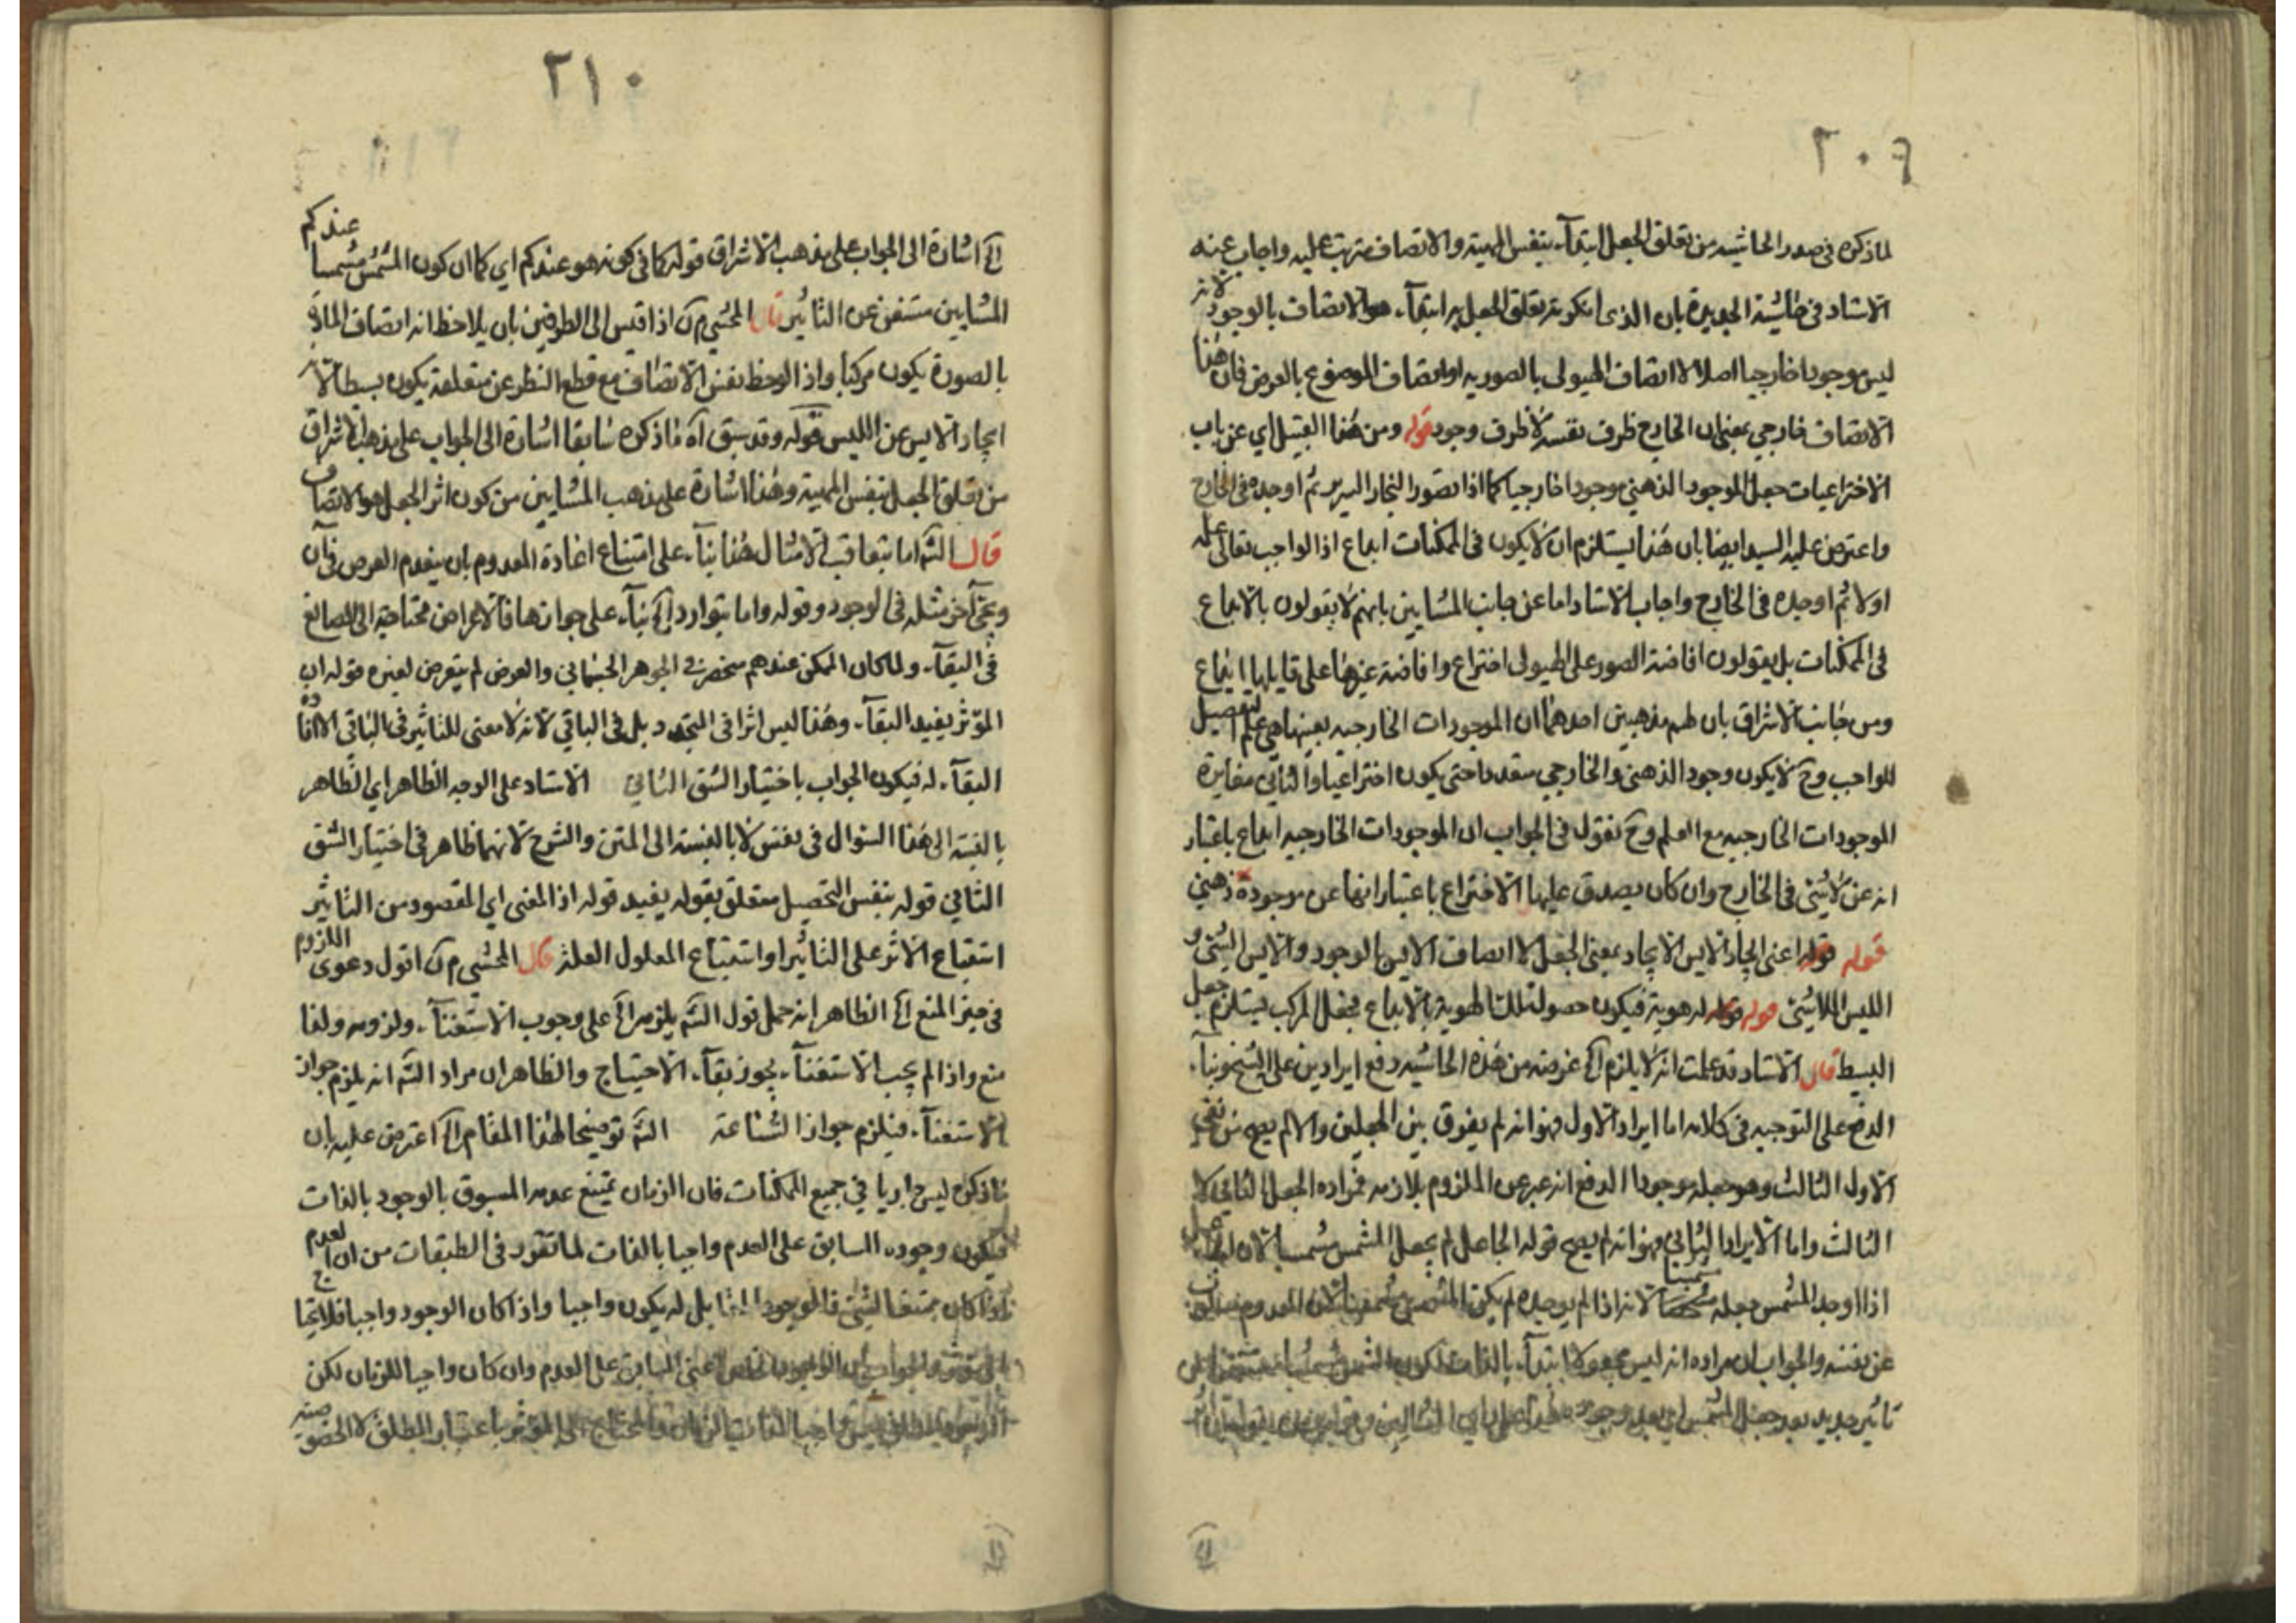 ٢٠٩
لما ذكره في صدر الحاشيه من تعلق الجعل ابتدآء بنفس المهية والاتصاف مترتب عليه واجاب عنه
الاستاد في حاشية الجديدة بان الذى انكرته تعلق الجعل به ابتدآء هو الاتصاف بالوجود لانه
ليس موجودا خارجيا اصلا لا اتصاف الهيولى بالصوريه او اتصاف الموضوع بالعرض فان هذا
الاتصاف خارجي بمعنى ان الخارج ظرف نفسه لا ظرف وجوده قوله ومن هذا القبيل اي عن باب
الاختراعيات جعل الموجود الذهني موجودا خارجيا كما اذا تصور النجار السرير ثم اوجده في الخارج
واعترض عليه السيد ايضا بان هذا يستلزم ان لا يكون في الممكنات ابداع اذ الواجب تعالى علمه
اولا ثم اوجده في الخارج واجاب الاستاد اما عن جانب المشايين بانهم لا يقولون بالابداع
في الممكنات بل يقولون افاضة الصور على الهيولى اختراع وافاضة غيرها على قابلها ابداع
ومن جانب الاشراق بان لهم مذهبين احدهما ان الموجودات الخارجيه بعينها هي علم التفصيل
للواجب وح لا يكون وجود الذهني والخارجي متعددا حتى يكون اختراعيا والثاني مغايرة
الموجودات الخارجيه مع العلم وح نقول في الجواب ان الموجودات الخارجيه ابداع باعتبار
انه عن لا شئ في الخارج وان كان يصدق عليها الاختراع باعتبار انها عن موجودة ذهني
قوله قوله اعنى ايجاد الايس الايجاد بمعنى الجعل لا اتصاف الايس بالوجود والايس الشئ و
الليس اللاشئ قوله قوله له هوية فيكون حصول تلك الهوية بالابداع فجعل المركب يستلزم جعل
البسيط قال الاستاد قد علمت انه لا يلزم الخ غرضه من هذه الحاشيه دفع ايرادين على الشيخ بنآء
الدفع على التوجيه في كلامه اما ايراد الاول فهو انه لم يفرق بين الجعلين والا لم يصح نفي
الاول الثالث وهو جعله موجودا الدفع انه عبر عن الملزوم بلازمه فمراده الجعل الثاني لا
الثالث واما الايراد الثاني فهو انه لم يصح قوله الجاعل لم يجعل المشمش مشمسا لان الجاعل
اذا اوجد المشمس جعله مشمسا لانه اذا لم يوجده لم يكن المشمس مشمسا لان المعدوم مسلوب
عن نفسه والجواب ان مراده انه ليس مجعولا ابتدآء بالذات لكون المشمس مشمسا
تاثير جديد بعد جعل المشمس اي بعد وجوده
٢١٠
الخ اشارة الى الجواب على مذهب الاشراق قوله كما في كونه هو عندكم اي كما ان كون المشمس مشمسا عندكم
المشايين مستغن عن التاثير قال المحشي م ن اذا قيس الى الطرفين بان يلاحظ انه اتصاف المادة
بالصورة يكون مركبا واذا لوحظ نفس الاتصاف مع قطع النظر عن متعلقه يكون بسيطا لانه
ايجاد الايس عن الليس قوله وقد سبق آه ما ذكره سابقا اشارة الى الجواب على مذهب الاشراق
من تعلق الجعل بنفس المهية وهذا اشارة على مذهب المشايين من كون اثر الجعل هو الاتصاف
قال الشه اما بتعاقب الامثال هذا بنآء على امتناع اعادة المعدوم بان ينعدم العرض في آن
ويجئ آخر مثله في الوجود وقوله واما بتوارد الخ بنآء على جوازها فالاعراض محتاجة الى الصانع
في البقآء ولما كان الممكن عندهم منحصر في الجوهر الجسماني والعرض لم يتعرض لغيره قوله ان
المؤثر يفيد البقآء وهذا ليس اثرا في المتجدد بل في الباقي لانه لا معنى للتاثير في الباقي الا افادة
البقآء له فيكون الجواب باختيار الشق الثاني الاستاد على الوجه الظاهر اي الظاهر
بالنسبة الى هذا السوال في نفس لا بالنسبة الى المتن والشرح لانهما ظاهر في اختيار الشق
الثاني قوله بنفس التحصيل متعلق بقوله يفيد قوله اذ المعنى اي المقصود من التاثير
استتباع الاثر على التاثير او استتباع المعلول العلة قال المحشي م ن اقول دعوى اللزوم
في حيز المنع الخ الظاهر انه حمل قول الشه يلزم الخ على وجوب الاستغنآء ولزومه ولذا
منع واذا لم يجب الاستغنآء يجوز بقآء الاحتياج والظاهر ان مراد الشه انه يلزم جواز
الاستغنآء فيلزم جواز الشناعة الشه توضيحا لهذا المقام الخ اعترض عليه بان
ما ذكره ليس جاريا في جميع الممكنات فان الزمان يمتنع عدمه المسبوق بالوجود بالذات
فيكون وجوده السابق على العدم واجبا بالذات لما تقرر في الطبقات من ان العدم
اذا كان ممتنعا لشئ فالوجود المقابل له يكون واجبا واذا كان الوجود واجبا فلا يحتاج
الى مؤثر والجواب ان الوجود الخاص اعنى السابق على العدم وان كان واجبا للزمان لكن
الوجود المطلق ليس واجبا الذات الزمان والمحتاج الى المؤثر باعتبار المطلق لا الخصوصية